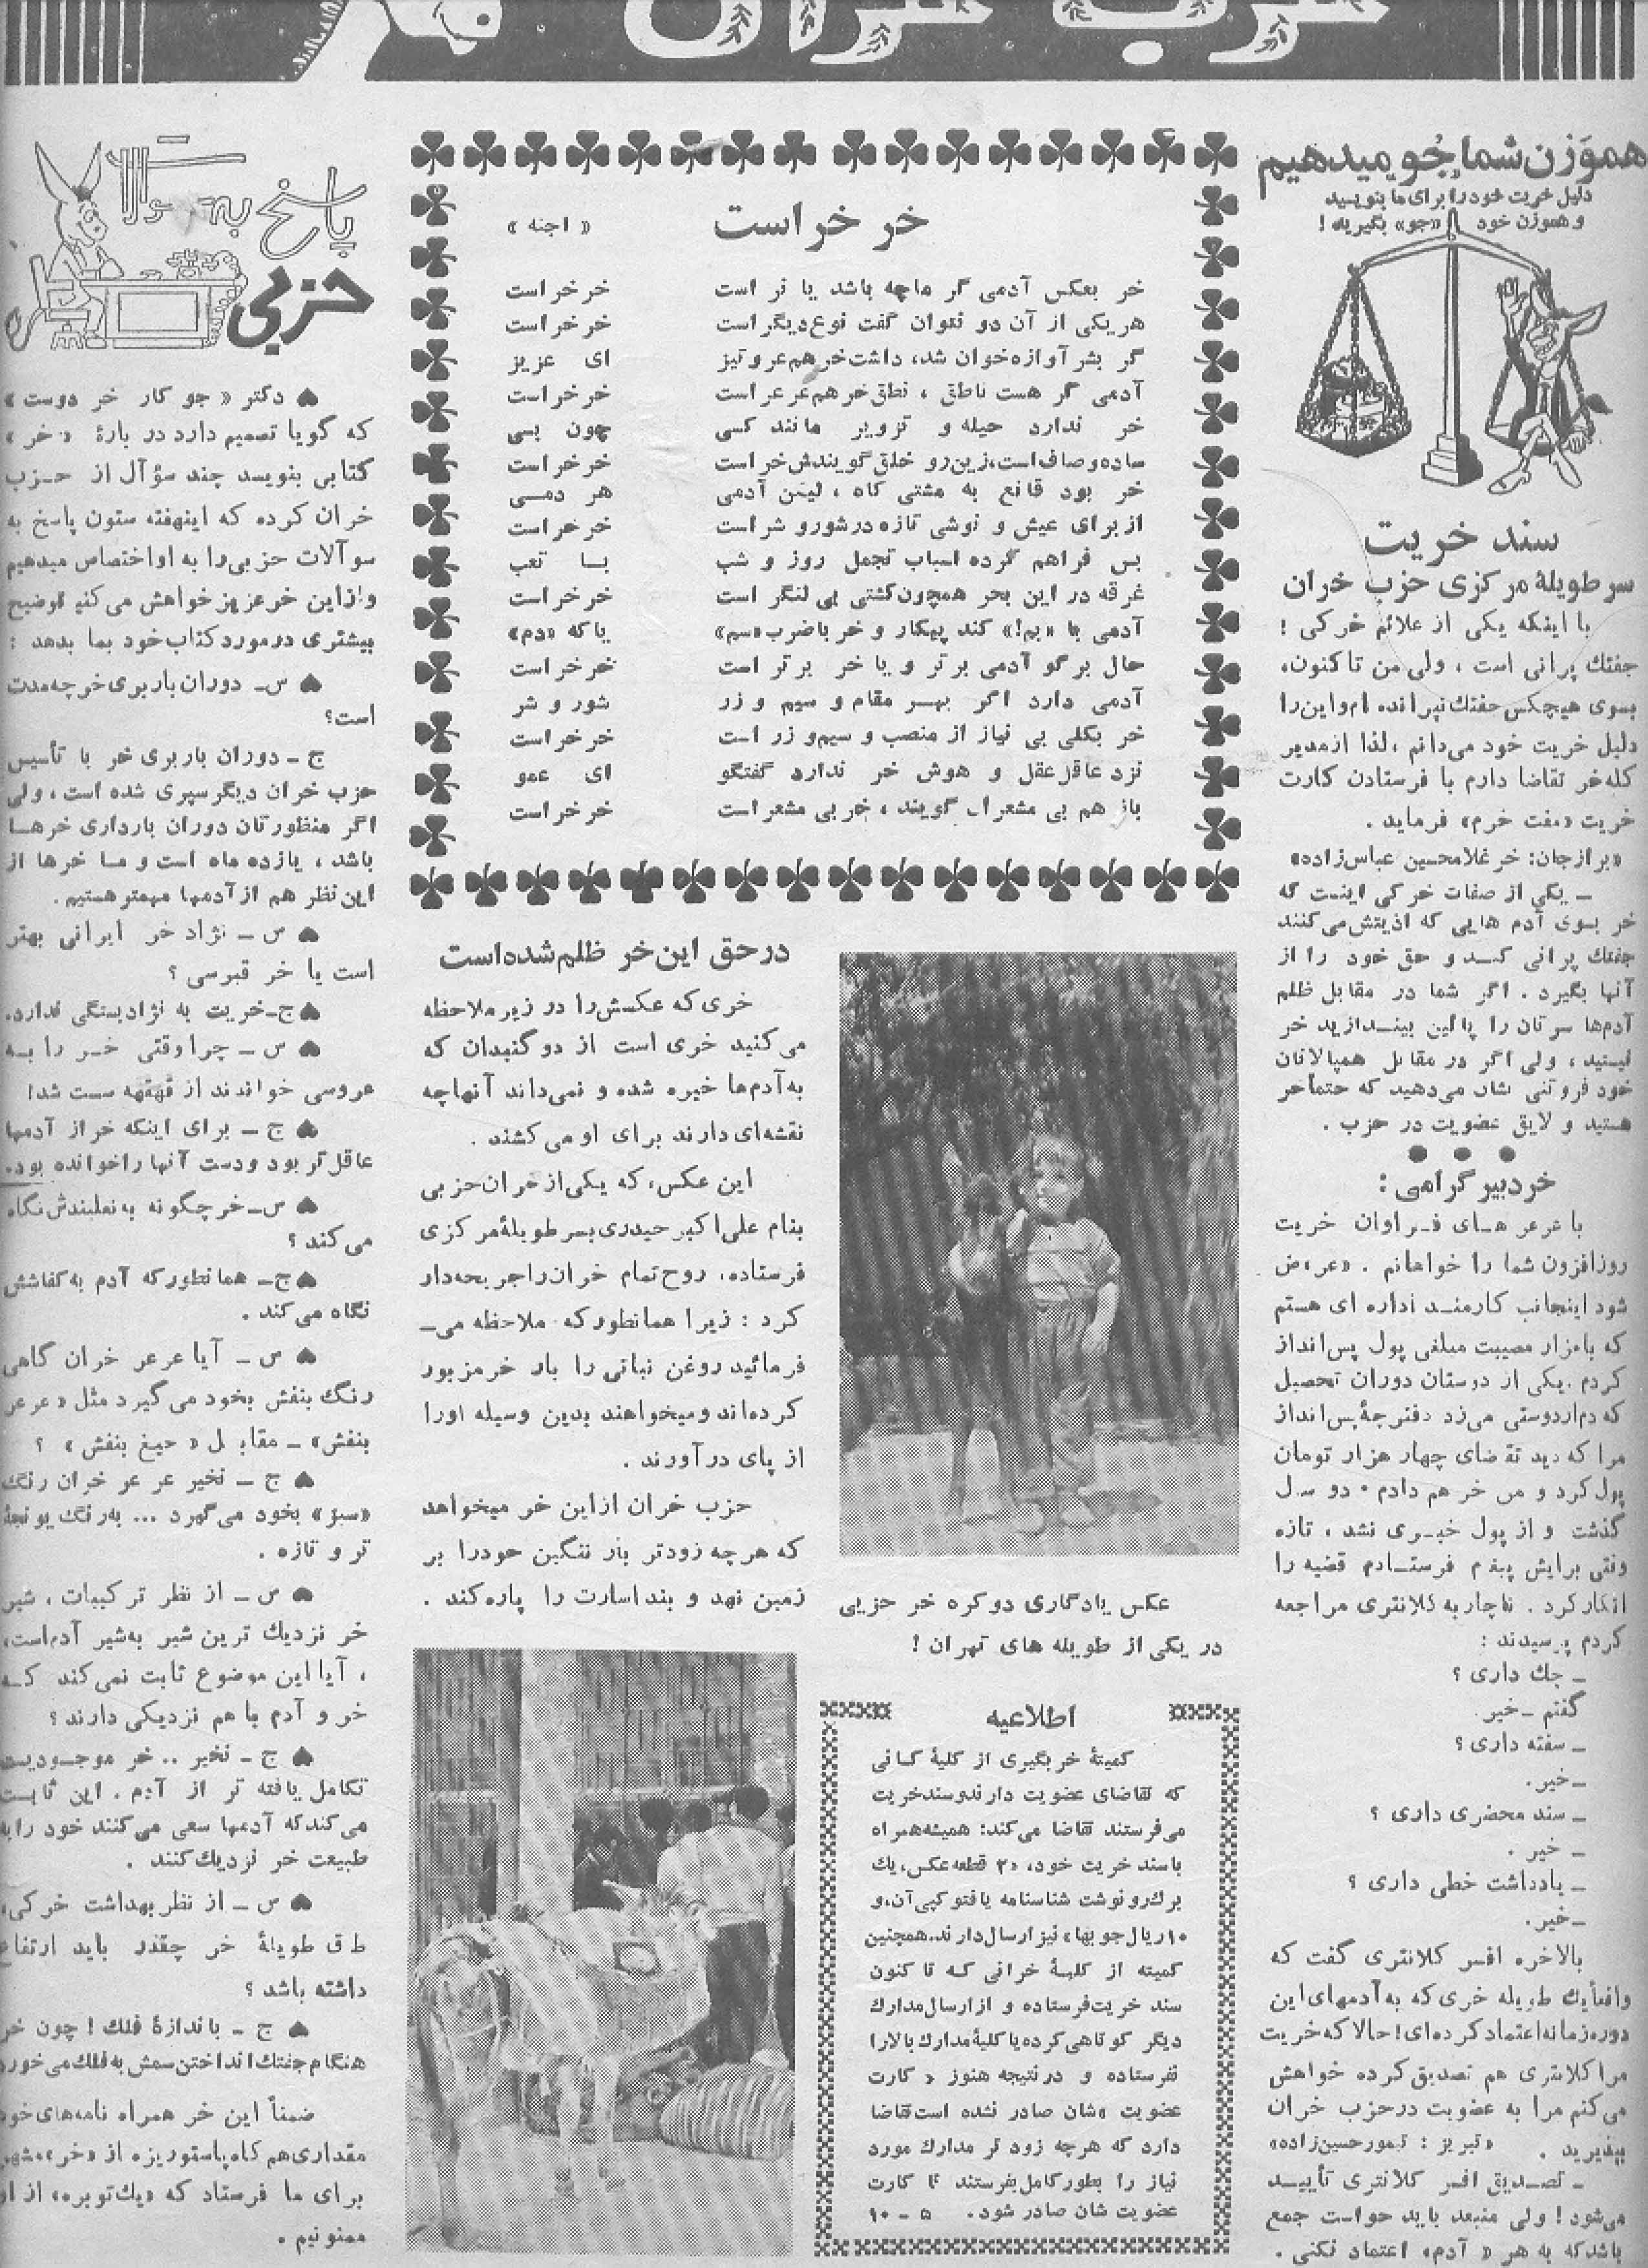 حزب خران
هموزن شما جو میدهیم
دلیل خریت خود را برای ما بنویسید
و هموزن خود «جو» بگیرید!
سند خریت
سر طویلهٔ مرکزی حزب خران
با اینکه یکی از علائم خرکی!
جفتک پرانی است ، ولی من تا کنون،
بسوی هیچکس جفتک نپرانده ام و این را
دلیل خریت خود می‌دانم ، لذا از مدیر
کله‌خر تقاضا دارم با فرستادن کارت
خریت «مفت خرم» فرماید .
«برازجان: خر غلامحسین عباس‌زاده»
ـ یکی از صفات خرکی اینست که
خر بسوی آدم هایی که اذیتش می‌کنند
جفتک پرانی کند و حق خود را از
آنها بگیرد . اگر شما در مقابل ظلم
آدم‌ها سرتان را پائین بیندازید خر
نیستید ، ولی اگر در مقابل همپالانان
خود فروتنی نشان می‌دهید که حتماً خر
هستید و لایق عضویت در حزب .
خردبیر گرامی :
با عرعر های فراوان خریت
روزافزون شما را خواهانم . «عرعض
شود اینجانب کارمند اداره ای هستم
که با هزار مصیبت مبلغی پول پس‌انداز
کردم . یکی از دوستان دوران تحصیل
که دم از دوستی می‌زد دفترچهٔ پس‌انداز
مرا که دید تقاضای چهار هزار تومان
پول کرد و من خر هم دادم . دو سال
گذشت و از پول خبری نشد ، تازه
وقتی برایش پیغام فرستادم قضیه را
انکار کرد . ناچار به کلانتری مراجعه
کردم پرسیدند :
ـ چک داری ؟
گفتم ـ خیر
ـ سفته داری ؟
ـ خیر.
ـ سند محضری داری ؟
ـ خیر .
ـ یادداشت خطی داری ؟
ـ خیر.
بالاخره افسر کلانتری گفت که
واقعاً یک طویله خری که به آدمهای این
دوره زمانه اعتماد کرده‌ای! حالا که خریت
مرا کلانتری هم تصدیق کرده خواهش
می‌کنم مرا به عضویت در حزب خران
بپذیرید . «تبریز : تیمور حسین‌زاده»
ـ تصدیق افسر کلانتری تأیید
می‌شود! ولی منبعد باید حواست جمع
باشد که به هر «آدم» اعتماد نکنی .
خر خر است « اجنه »
خر بعکس آدمی گر ماچه باشد یا نر است خر خر است
هر یکی از آن دو نتوان گفت نوع دیگر است خر خر است
گر بشر آوازه‌خوان شد، داشت خر هم عر و تیز ای عزیز
آدمی گر هست ناطق ، نطق خر هم عرعر است خر خر است
خر ندارد حیله و تزویر مانند کسی چون بسی
ساده و صاف است، زین‌رو خلق گویندش خر است خر خر است
خر بود قانع به مشتی کاه ، لیکن آدمی هر دمی
از برای عیش و نوشی تازه در شور و شر است خر خر است
بس فراهم کرده اسباب تجمل روز و شب با تعب
غرقه در این بحر همچون کشتی بی لنگر است خر خر است
آدمی با «بم!» کند پیکار و خر با ضرب «سم» یا که «دم»
حال بر گو آدمی برتر و یا خر برتر است خر خر است
آدمی دارد اگر بهر مقام و سیم و زر شور و شر
خر بکلی بی نیاز از منصب و سیم و زر است خر خر است
نزد عاقل عقل و هوش خر ندارد گفتگو ای عمو
باز هم بی مشعران گویند ، خر بی مشعر است خر خر است
عکس یادگاری دو کره خر حزبی
در یکی از طویله های تهران !
اطلاعیه
کمیتهٔ خر بگیری از کلیهٔ کسانی
که تقاضای عضویت دارند و سند خریت
می‌فرستند تقاضا می‌کند: همیشه همراه
با سند خریت خود، «۲ قطعه عکس، یک
برگ رونوشت شناسنامه یا فتوکپی آن، و
۱۰ ریال جو بها» نیز ارسال دارند. همچنین
کمیته از کلیهٔ خرانی که تا کنون
سند خریت فرستاده و از ارسال مدارک
دیگر کوتاهی کرده یا کلیهٔ مدارک بالا را
نفرستاده و در نتیجه هنوز «کارت
عضویت» شان صادر نشده است تقاضا
دارد که هرچه زود تر مدارک مورد
نیاز را بطور کامل بفرستند تا کارت
عضویت شان صادر شود. ۵ ـ ۱۰
در حق این خر ظلم شده است
خری که عکسش را در زیر ملاحظه
می‌کنید خری است از دو گنبدان که
به آدم‌ها خیره شده و نمی‌داند آنها چه
نقشه‌ای دارند برای او می‌کشند .
این عکس، که یکی از خران حزبی
بنام علی‌اکبر حیدری بسر طویلهٔ مرکزی
فرستاده، روح تمام خران را جریحه‌دار
کرد : زیرا همانطور که ملاحظه می‌ـ
فرمائید روغن نباتی را بار خر مزبور
کرده‌اند و میخواهند بدین وسیله او را
از پای در آورند .
حزب خران از این خر میخواهد
که هرچه زودتر بار ننگین خود را بر
زمین نهد و بند اسارت را پاره کند .
پاسخ به سوالات
حزبی
♠ دکتر « جو کار خر دوست »
که گویا تصمیم دارد در بارهٔ «خر»
کتابی بنویسد چند سؤال از حزب
خران کرده که اینهفته ستون پاسخ به
سوآلات حزبی را به او اختصاص میدهیم
و از این خر عزیز خواهش می‌کنیم توضیح
بیشتری در مورد کتاب خود بما بدهد :
♠ س ـ دوران باربری خر چه مدت
است؟
ج ـ دوران باربری خر با تأسیس
حزب خران دیگر سپری شده است ، ولی
اگر منظورتان دوران بارداری خرها
باشد ، یازده ماه است و ما خرها از
این نظر هم از آدمها مهمتر هستیم .
♠ س ـ نژاد خر ایرانی بهتر
است یا خر قبرسی ؟
♠ ج ـ خریت به نژاد بستگی ندارد.
♠ س ـ چرا وقتی خر را به
عروسی خواندند از قهقهه سست شد!
♠ ج ـ برای اینکه خر از آدمها
عاقل‌تر بود و دست آنها را خوانده بود.
♠ س ـ خر چگونه به نعلبندش نگاه
می‌کند ؟
♠ ج ـ همانطور که آدم به کفاشش
نگاه می‌کند .
♠ س ـ آیا عرعر خران گاهی
رنگ بنفش بخود می‌گیرد مثل «عرعر
بنفش» ـ مقابل «جیغ بنفش» ؟
♠ ج ـ نخیر عر عر خران رنگ
«سبز» بخود می‌گیرد ... به رنگ یونجهٔ
تر و تازه .
♠ س ـ از نظر ترکیبات ، شیر
خر نزدیک ترین شیر به شیر آدم است،
، آیا این موضوع ثابت نمی‌کند که
خر و آدم با هم نزدیکی دارند ؟
♠ ج ـ نخیر .. خر موجودیست
تکامل یافته تر از آدم . این ثابت
می‌کند که آدمها سعی می‌کنند خود را به
طبیعت خر نزدیک کنند .
♠ س ـ از نظر بهداشت خرکی،
طاق طویلهٔ خر چقدر باید ارتفاع
داشته باشد ؟
♠ ج ـ باندازهٔ فلک ! چون خر
هنگام جفتک انداختن سمش به فلک می‌خورد
ضمناً این خر همراه نامه‌های خود
مقداری هم کاه پاستوریزه از «خر»مشهر
برای ما فرستاد که «یک توبره» از او
ممنونیم .